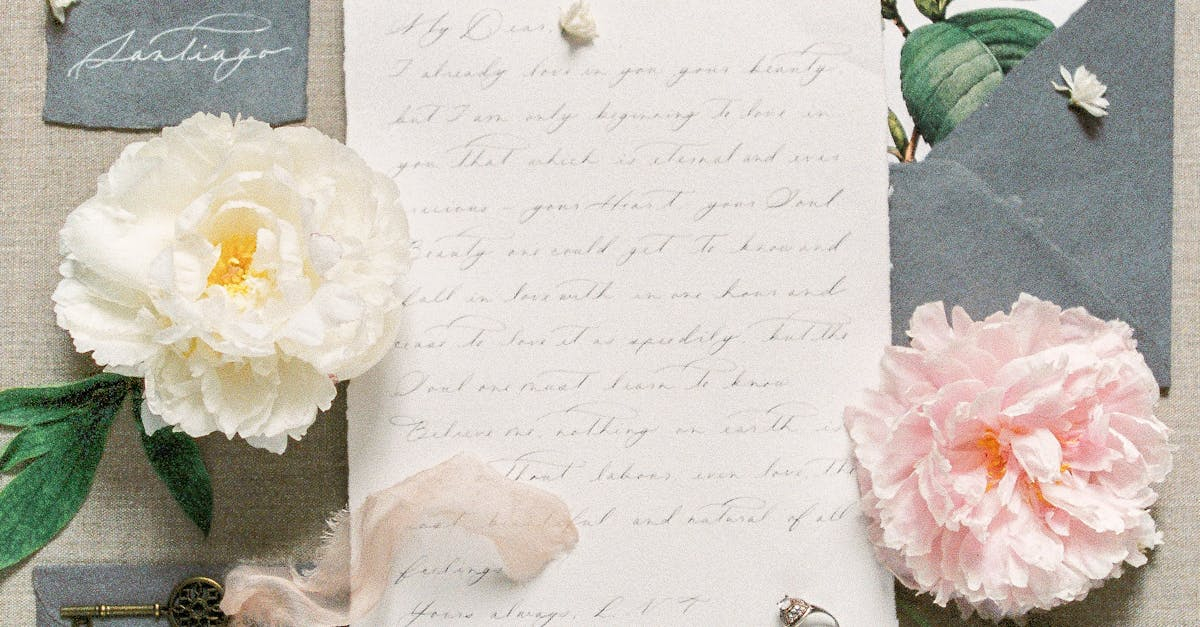 Santiago
My Dear,
I already love in you your beauty,
but I am only beginning to love in
you that which is eternal and ever
precious – your Heart, your Soul.
Beauty one could get to know and
fall in love with in one hour and
cease to love it as speedily, but the
Soul one must learn to know.
Believe me, nothing on earth is
without labour, even love, the
most beautiful and natural of all
feelings
Yours always, L.N.T.